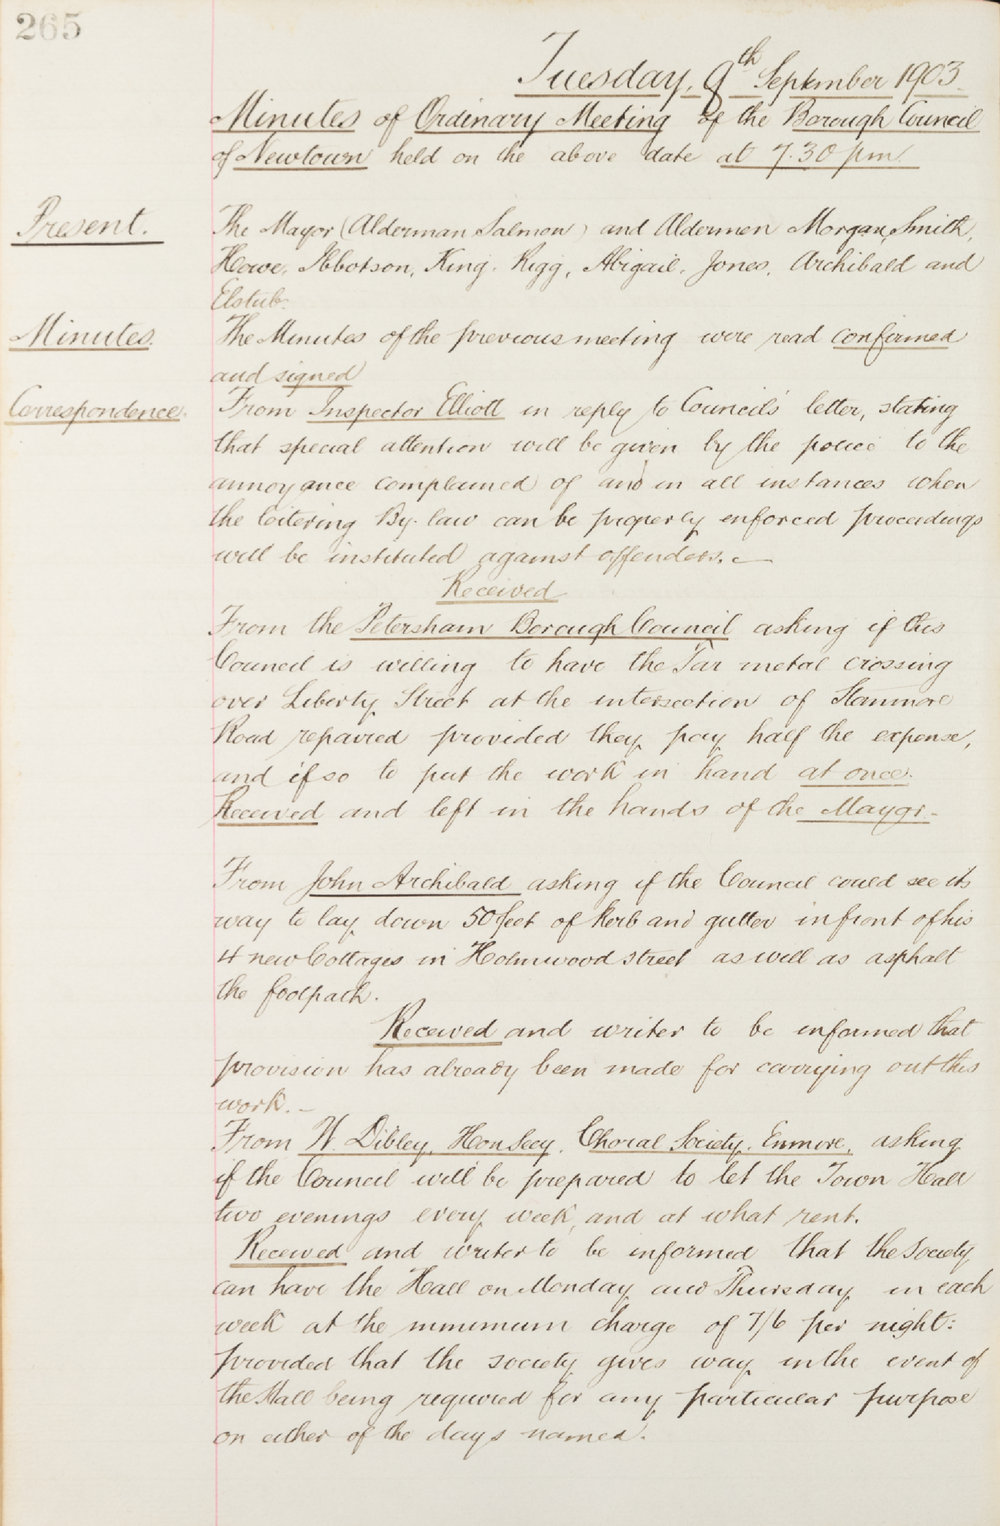 265
Tuesday, 9th September 1903.
Minutes of Ordinary Meeting of the Borough Council
of Newtown held on the above date at 7.30 pm.
Present. The Mayor (Alderman Salmon) and Aldermen Morgan, Smith,
Howe, Ibbotson, King, Rigg, Abigail, Jones, Archibald and
Elstub.
Minutes. The Minutes of the previous meeting were read confirmed
and signed
Correspondence. From Inspector Elliott in reply to Council's letter, stating
that special attention will be given by the police to the
annoyance complained of and in all instances when
the loitering By-law can be properly enforced proceedings
will be instituted against offenders. —
Received
From the Petersham Borough Council asking if this
Council is willing to have the Tar metal crossing
over Liberty Street at the intersection of Stanmore
Road repaired provided they pay half the expense,
and if so to put the work in hand at once.
Received and left in the hands of the Mayor. -
From John Archibald asking if the Council could see its
way to lay down 50 feet of kerb and gutter in front of his
4 new Cottages in Holmwood street as well as asphalt
the footpath.
Received and writer to be informed that
provision has already been made for carrying out this
work. —
From W. Dibley, Hon Secy. Choral Society, Enmore, asking
if the Council will be prepared to let the Town Hall
two evenings every week, and at what rent.
Received and writer to be informed that the Society
can have the Hall on Monday and Thursday in each
week at the minimum charge of 7/6 per night:
provided that the society gives way in the event of
the Hall being required for any particular purpose
on either of the days named.